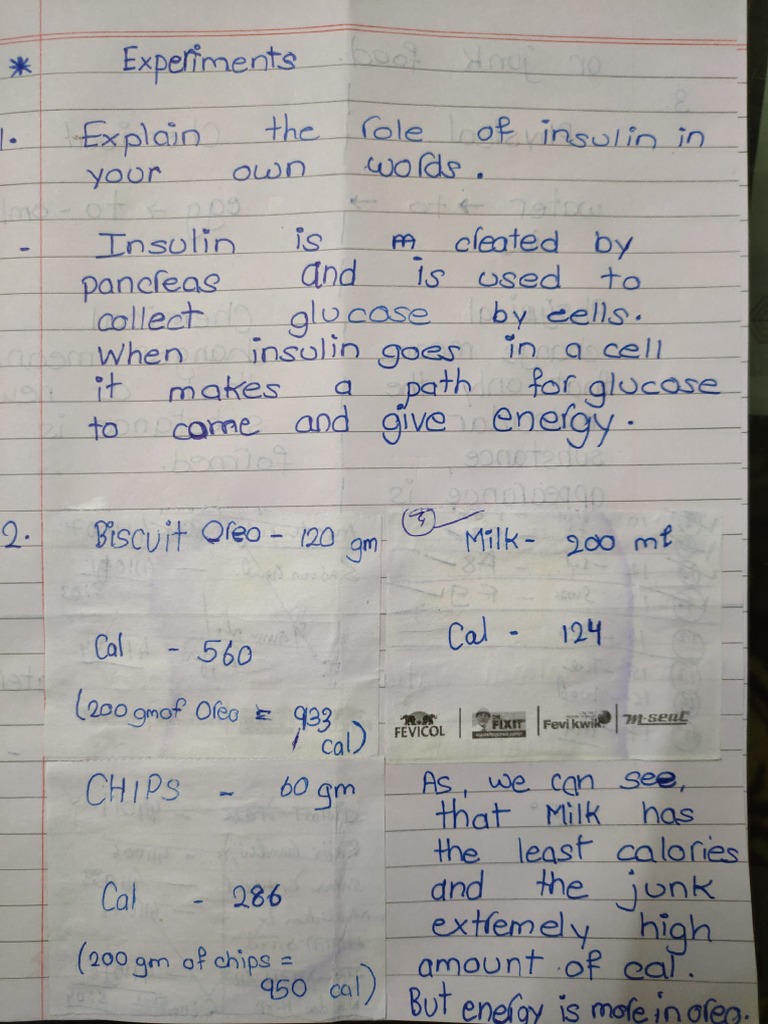 * Experiments
1. Explain the role of insulin in
your own words.
- Insulin is created by
pancreas and is used to
collect glucose by cells.
When insulin goes in a cell
it makes a path for glucose
to come and give energy.
2. Biscuit Oreo - 120 gm
Cal - 560
(200 gm of Oreo = 933
cal)
3 Milk - 200 ml
Cal - 124
FEVICOL | FIXIT | Fevi kwik | m-seal
CHIPS - 60 gm
Cal - 286
(200 gm of chips =
950 cal)
As, we can see,
that Milk has
the least calories
and the junk
extremely high
amount of cal.
But energy is more in oreo.